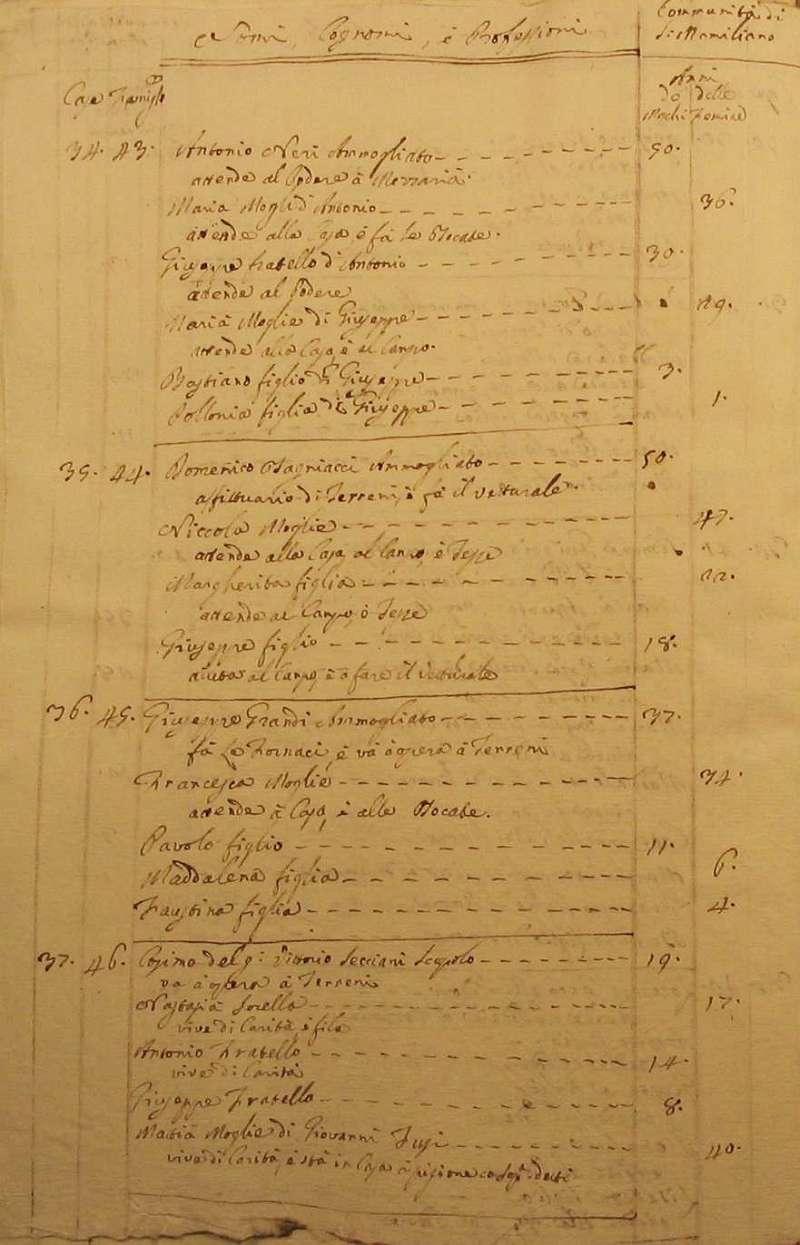 Nomi, Cognomi, è Professioni
Communità di
S: Mamiliano
Case Famiglie
Anni
de delle
Maschi Femine
34. 43. Antonio Neri Ammogliato 50.
attende al Podere à Mezzaria
Maria Moglie d'Antonio 36.
attende alla Casa è fà le
Giuseppe fratello d'Antonio 30.
attende al Podere
Maria Moglie di Giuseppe 29.
attende alla Casa, è al Campo.
Bastiano figlio di Giuseppe 3.
Pollonia figlia di Giuseppe 1.
35. 44. Domenico Ammogliato 50.
affittuario di Terreni, è fà il Vetturale
Niccola Moglie 47.
attende alla Casa al Campo è Tesse
Margherita figlia 22.
attende al Campo ò Tesse
Giuseppe figlio 18.
al Campo è à fare il Vetturale
36. 45. Giuseppe Grandi Ammogliato 37.
fà le Fornaci, è và à opera à Terreni
Francesca Moglie 34.
attende à Casa, è alle
Pavolo figlio 11.
Maddalena figlia 6.
Faustina figlia 4.
37. 46. Cosimo del q: Secciani 19.
va à opera à Terreni
Nastasia Sorella 17.
vive di Carità, è fila
Antonio Fratello 14.
vive di Carità
Giuseppe Fratello 8.
Maria Moglie di Giovanni 40.
vive di Carità è stà in Casa à pigione